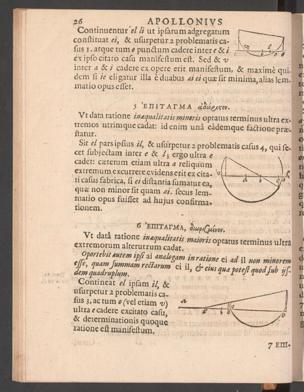 26 APOLLONIVS
Continuentur el ii ut ipsarum adgregatum
constituat ei, & usurpetur 2 problematis ca-
sus 1. atque tum e punctum cadere inter e & i
ex ipso citato casu manifestum est. Sed & v
inter a & i cadere ex opere erit manifestum, & maximè qui-
dem si ie eligatur illa è duabus ei quæ sit minima, alias lem-
matio opus esset.
5 ἘΠΙΤΑΓΜΑ
Vt data ratione inæqualitatis minoris optatus terminus ultra ex-
tremos utrimque cadat: id enim unâ eâdemque factione præ-
statur.
Sit el pars ipsius il, & usurpetur 2 problematis casus 4, qui se-
cet subjectam inter e & l; ergo ultra e
cadet: cæterum etiam ultra a reliquum
extremum excurrere evidens erit ex cita-
ti casus fabrica, si ei distantia sumatur ea,
quæ non minor sit quam ai. secus lem-
matio opus fuisset ad hujus confirma-
tionem.
6 ἘΠΙΤΑΓΜΑ,
Vt datâ ratione inæqualitatis maioris optatus terminus ultra
extremorum alterutrum cadat.
Oportebit autem ipsi ai analogam in ratione ei ad il non minorem
esse, quam summam rectarum ei il, & eius quæ potest quod sub ijs-
dem quadruplum.
Contineat el ipsam il, &
usurpetur 2 problematis ca-
sus 3, ac tum e (vel etiam v)
ultra e cadere excitato casu,
& determinationis quoque
ratione est manifestum.
7 ΕΠΙ-